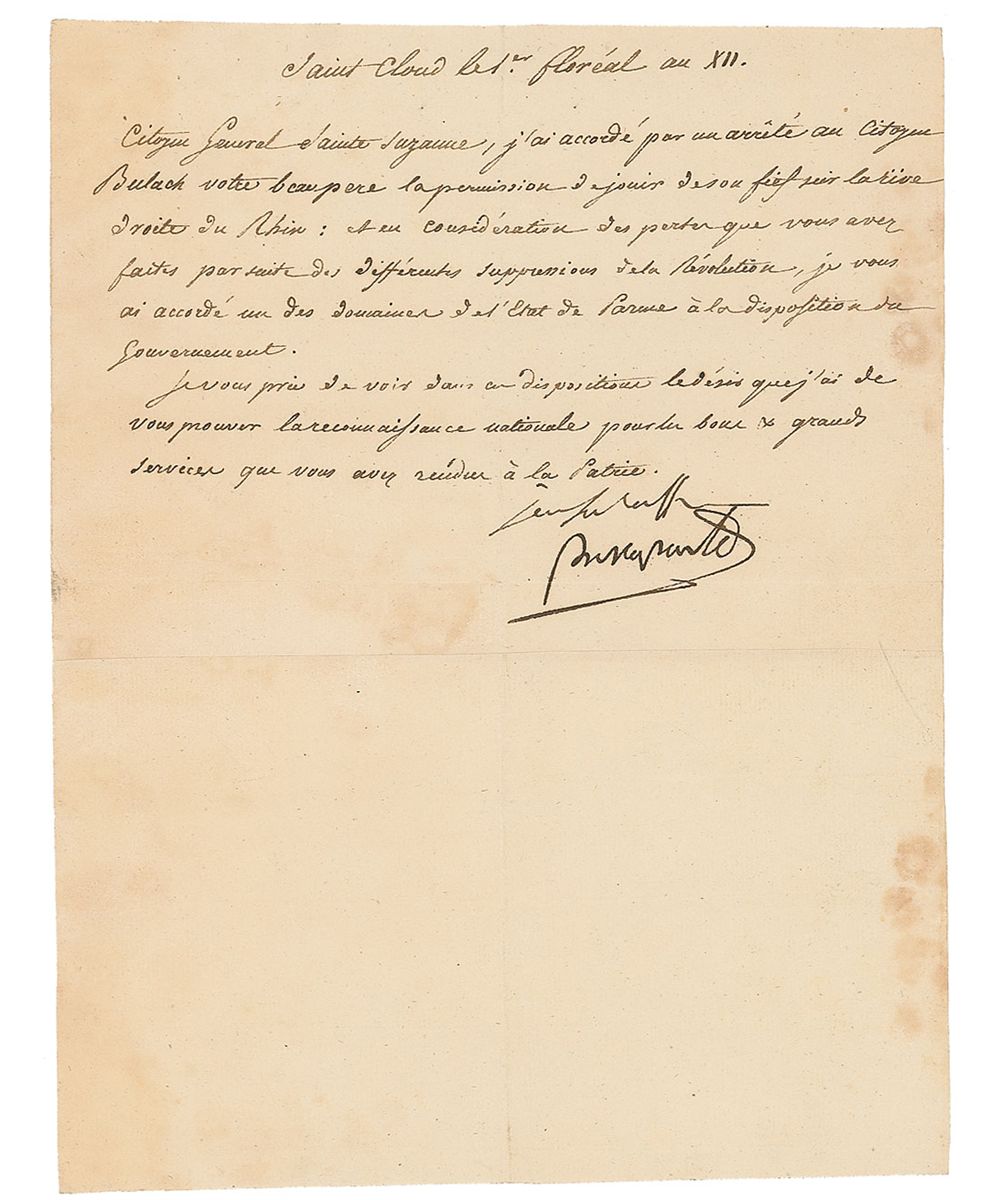 Saint Cloud le 1.er floréal an XII.
Citoyen General Sainte Suzanne, j'ai accordé par un arrêté au Citoyen
Bulach votre beaupere la permission de jouir de son fief sur la rive
droite du Rhin : et en considération des pertes que vous avez
faites par suite des différentes suppressions de la Révolution, je vous
ai accordé un des domaines de l'Etat de Parme à la disposition du
Gouvernement.
Je vous prie de voir dans ces dispositions le désir que j'ai de
vous prouver la reconnaissance nationale pour les bons & grands
services que vous avez rendus à la Patrie.
Bonaparte